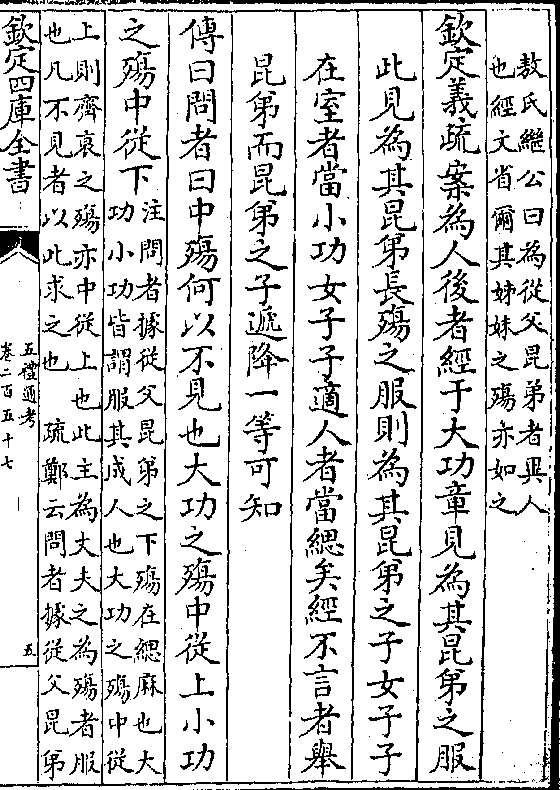 敖氏繼公曰為從父昆弟者異人
也經文省爾其姊妹之殤亦如之
欽定義疏案為人後者經于大功章見為其昆弟之服
此見為其昆弟長殤之服則為其昆弟之子女子子
在室者當小功女子子適人者當緦矣經不言者舉
昆弟而昆弟之子遞降一等可知
傳曰問者曰中殤何以不見也大功之殤中從上小功
之殤中從下
注問者據從父昆弟之下殤在緦麻也大
功小功皆謂服其成人也大功之殤中從
上則齊衰之殤亦中從上也此主為丈夫之為殤者服
也凡不見者以此求之也 疏鄭云問者據從父昆弟
欽定四庫全書
五禮通考
卷二百五十七
五